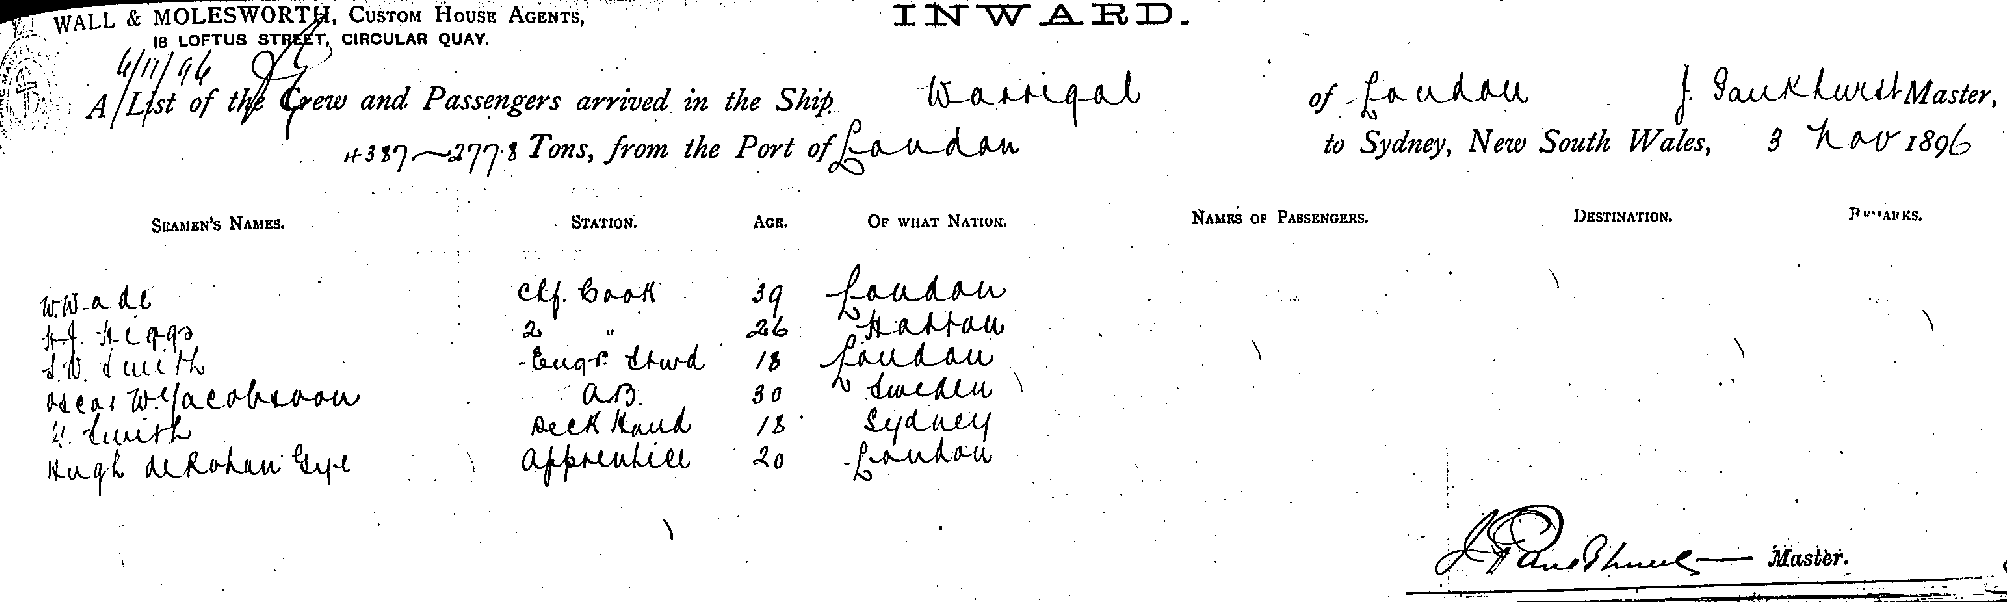 WALL & MOLESWORTH, CUSTOM HOUSE AGENTS,
INWARD.
18 LOFTUS STREET, CIRCULAR QUAY.
6/11/96
A List of the Crew and Passengers arrived in the Ship Warrigal of London J. Pankhurst Master,
4387-2778 Tons, from the Port of London to Sydney, New South Wales, 3 Nov 1896
SEAMEN'S NAMES. STATION. AGE. OF WHAT NATION. NAMES OF PASSENGERS. DESTINATION. REMARKS.
W. Wade Chf. Cook 39 London
H.J. Higgs 2 " 26 Harrow
S.W. Smith Engrs Stwd 18 London
Oscar W. Jacobsson A.B. 30 Sweden
H. Smith Deck Hand 18 Sydney
Hugh de Rohan Gye Apprentice 20 London
J. Pankhurst Master.